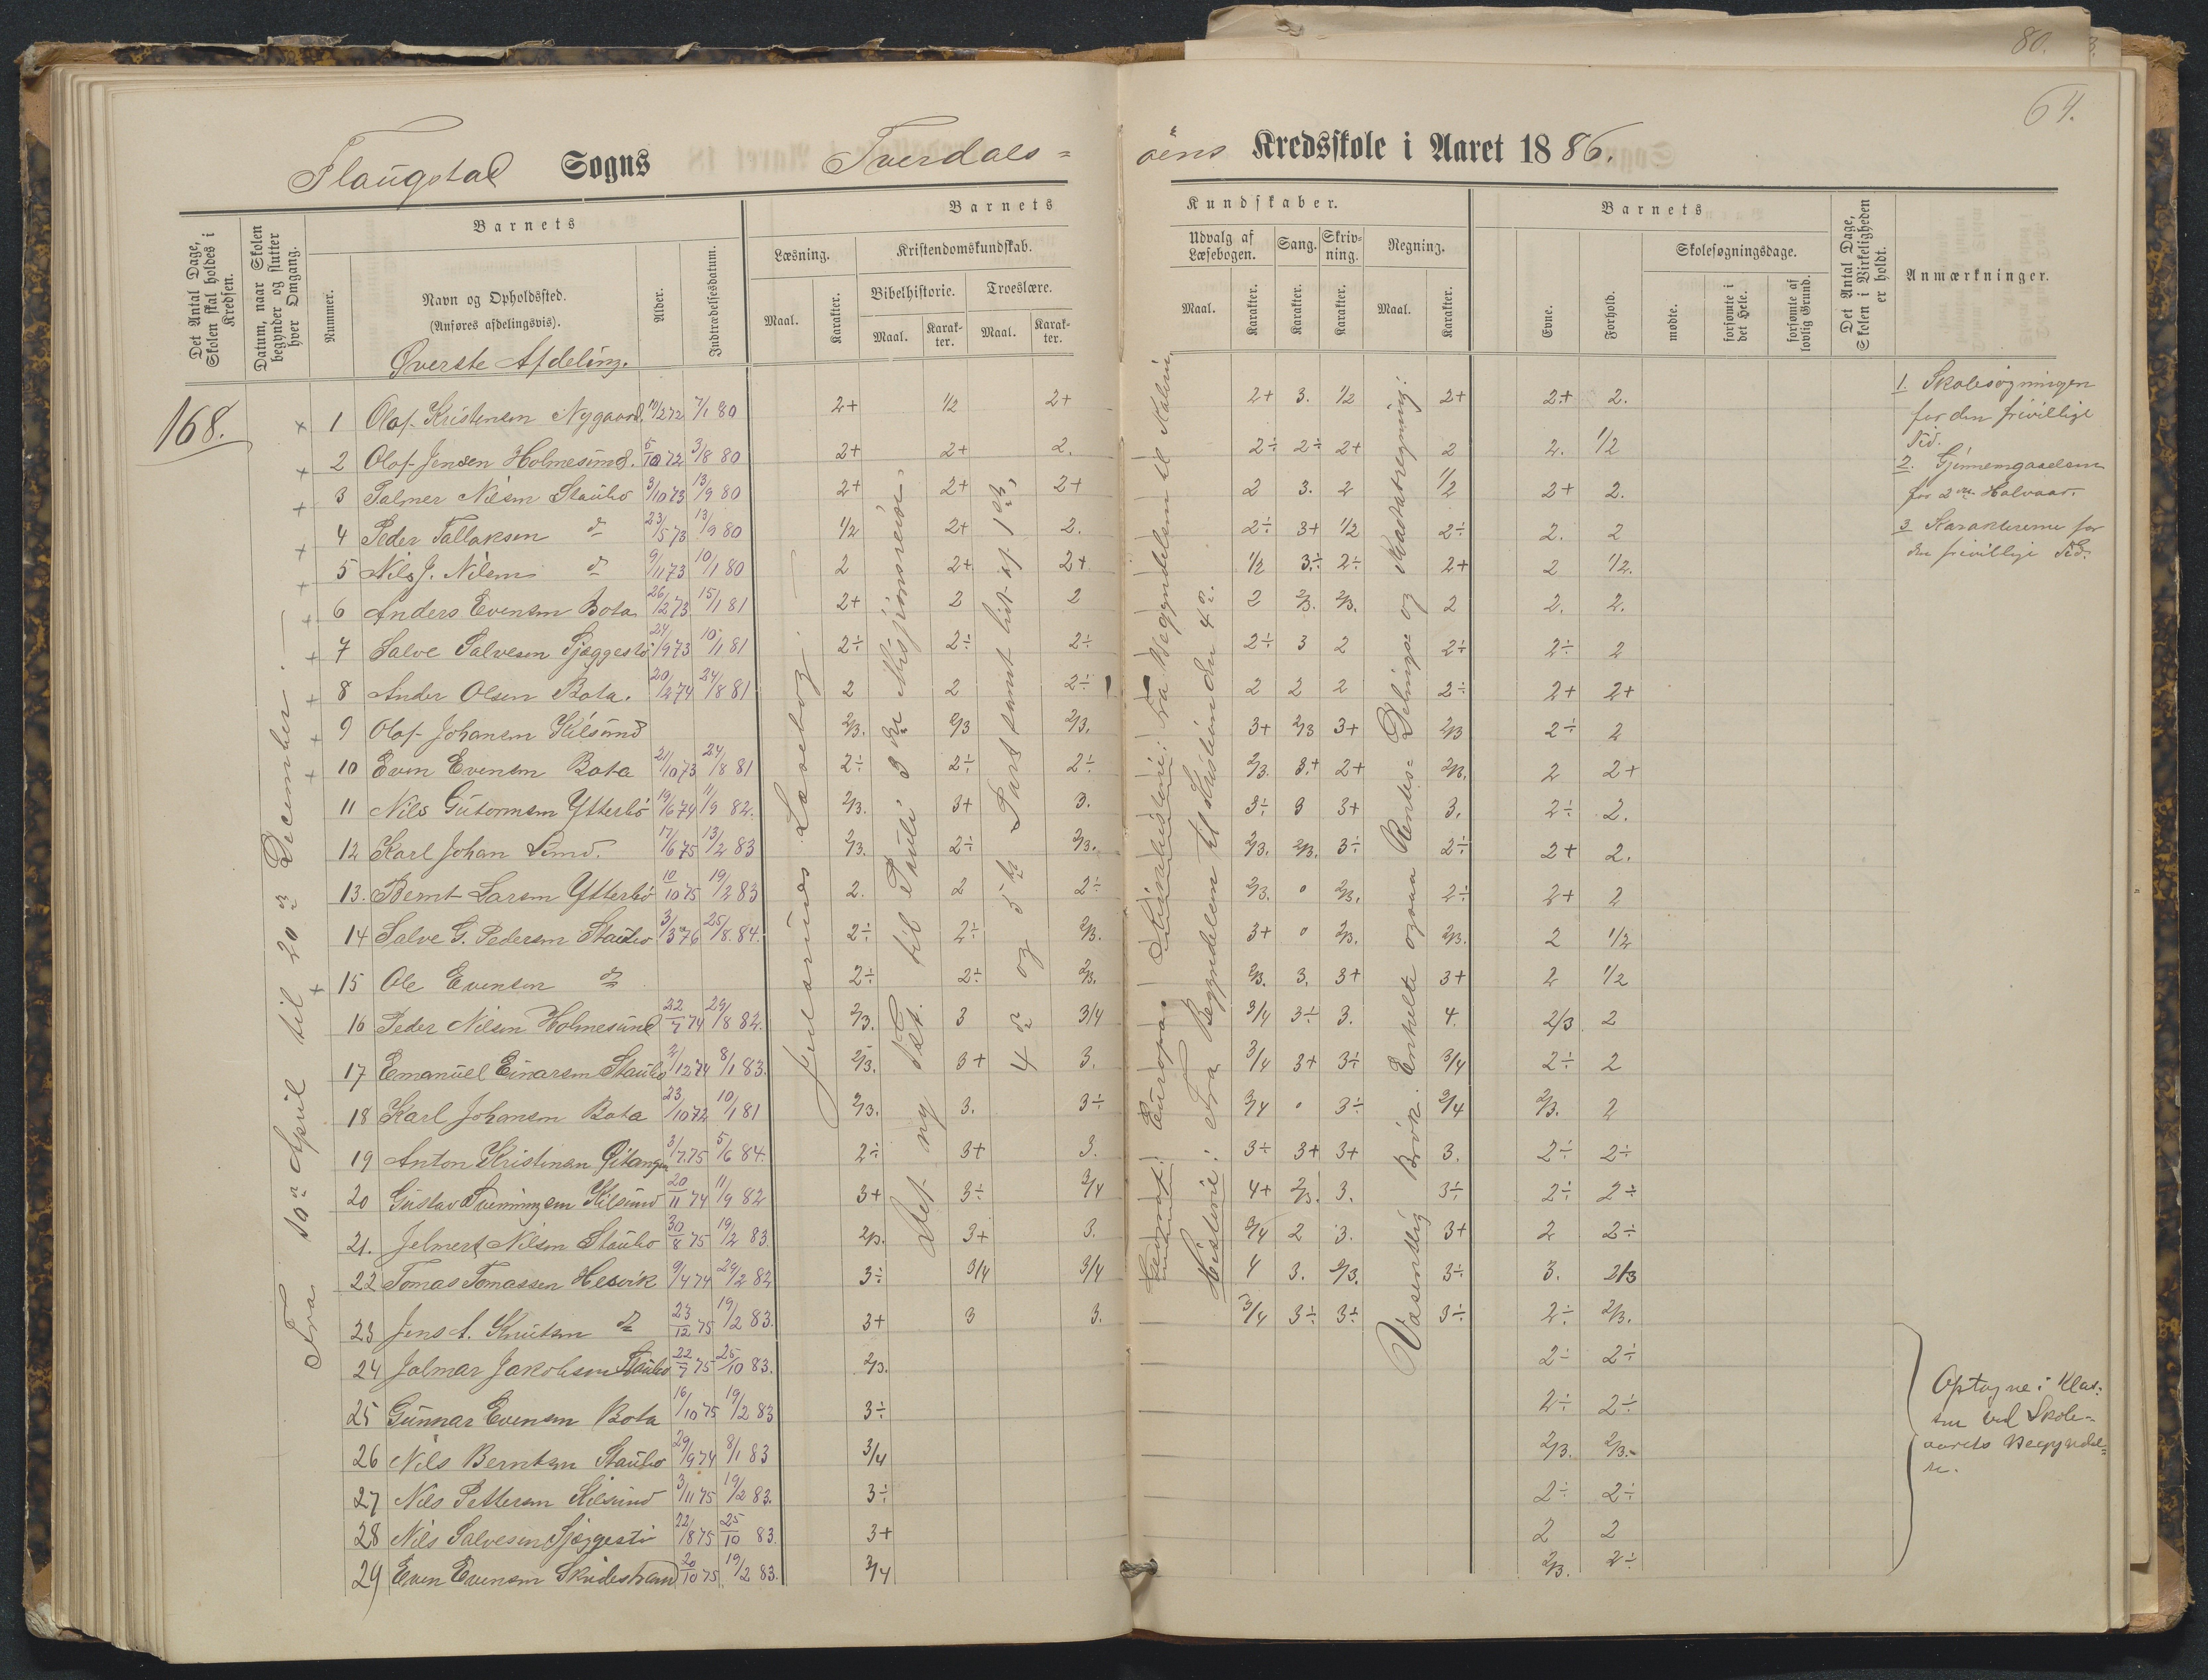 80.
64.
Flaugstad Sogns Tverdals=
öens Kredsskole i Aaret 1886.
Det Antal Dage, Skolen skal holdes i Kredsen.
Datum, naar Skolen begynder og slutter hver Omgang.
Barnets
Nummer.
Navn og Opholdssted.
(Anføres afdelingsvis).
Alder.
Indtrædelsesdatum.
Barnets
Læsning.
Maal.
Karakter.
Kristendomskundskab.
Bibelhistorie.
Maal.
Karakter.
Troeslære.
Maal.
Karakter.
Kundskaber.
Udvalg af Læsebogen.
Maal.
Karakter.
Sang.
Karakter.
Skrivning.
Karakter.
Regning.
Maal.
Karakter.
Barnets
Evne.
Forhold.
Skolesøgningsdage.
mødte.
forsømte i det Hele.
forsømte af lovlig Grund.
Det Antal Dage, Skolen i Virkeligheden er holdt.
Anmærkninger.
Øverste Afdeling.
168.
Fra 10de April til 20de December.
1 Olaf Kristensen Nygaard. 19/2 72 7/1 80 2+ 1/2 2+ 2+ 3. 1/2 2+ 2+ 2.
2 Olaf Jensen Holmesund. 5/10 72 3/8 80 2+ 2+ 2. 2÷ 2÷ 2+ 2 2. 1/2
3 Palmer Nilsen Staubo 3/10 73 13/9 80 2+ 2+ 2+ 2 3. 2 1/2 2+ 2.
4 Peder Tallaksen do 23/5 73 13/9 80 1/2 2+ 2. 2÷ 3+ 1/2 2÷ 2. 2
5 Nils J. Nilsen do 9/11 73 10/1 80 2 2+ 2+ 1/2 3÷ 2÷ 2+ 2 1/2.
6 Anders Evensen Bota 26/12 73 15/1 81 2+ 2 2 2 2/3. 2/3. 2 2. 2.
7 Salve Salvesen Sjæggestø 24/9 73 10/1 81 2÷ 2÷ 2÷ 2÷ 3 2 2÷ 2÷ 2
8 Ander Olsen Bota. 20/2 74 24/8 81 2 2 2÷ 2 2 2 2÷ 2+ 2+
9 Olaf Johansen Kilsund 2/3. 2/3 2/3. 3+ 2/3 3+ 2/3 2÷ 2
10 Even Evensen Bota 21/10 73 24/8 81 2÷ 2÷ 2÷ 2/3. 3+ 2+ 2/3. 2 2+
11 Nils Gutormsen Ytterbö 19/6 74 11/9 82. 2/3. 3+ 3. 3÷ 3 3+ 3. 2÷ 2.
12 Karl Johan Sund. 17/6 75 13/2 83 2/3. 2÷ 2/3. 2/3. 2/3. 3÷ 2÷ 2+ 2.
13. Bernt Larsen Ytterbö 10/10 75 19/2 83 2. 2 2÷ 2/3. 0 2/3. 2÷ 2+ 2
14 Salve G. Pedersen Staubo 3/3 76 25/8 84. 2÷ 2÷ 2/3. 3+ 0 2/3. 2/3. 2 1/2
15 Ole Evensen do 2÷ 2÷ 2/3. 2/3. 3. 3+ 3+ 2 1/2
16 Peder Nilsen Holmesund 22/7 74 29/8 82. 2/3. 3 3/4 3/4 3÷ 3. 4. 2/3 2
17 Emanuel Einarsen Staubo 2/12 74 8/1 83. 2/3. 3+ 3. 3/4 3+ 3÷ 3/4 2÷ 2
18 Karl Johansen Bota 23/10 72 10/1 81 2/3. 3. 3÷ 3/4 0 3÷ 3/4 2/3. 2
19 Anton Kristensen 3/7 75 5/6 84. 2÷ 3+ 3. 3÷ 3+ 3+ 3. 2÷ 2÷
20 Gustav Tveningsen Kilsund 20/11 74 11/9 82 3+ 3÷ 3/4 4+ 2/3. 3. 3÷ 2÷ 2÷
21. Jelmert Nilsen Staubo 30/8 75 19/2 83. 2/3. 3+ 3. 3/4 2 3. 3+ 2 2÷
22 Tomas Tomassen Hesvik 9/4 74 24/2 82 3÷ 3/4 3/4 4 3. 2/3. 3÷ 3. 2/3
23 Jens A. Knutsen do 23/12 75 19/2 83. 3+ 3 3. 3/4 3÷ 3÷ 3÷ 2÷ 2/3.
24 Jalmar Jakobsen Staubo 22/7 75 25/10 83. 2/3. 2÷ 2÷
25 Gunnar Evensen Bota 16/10 75 19/2 83 3÷ 2÷ 2÷
26 Nils Berntsen Staubo 29/9 74 8/1 83 3/4 2/3. 2/3.
27 Nils Pettersen Kilsund 3/11 75 19/2 83. 3÷ 2÷ 2÷
28 Nils Salvesen Sjæggestö 22/8 75 25/10 83. 3+ 2 2
29 Even Evensen Skudestrand 20/10 75 19/2 83. 3/4 2/3. 2÷
Jul Aarnes Læsebog.
Det ny Tst. til Pauli 3die Missjonsreise.
4de og 5te Part samt lidt af 1ste,
Geografi: Europa. Naturhistorie: Fra Begyndelsen til
Historie: Fra Begyndelsen til Kristian den 4de.
Væsentlig Brök. Enkelte ogsaa Rentes= Delings= og Kvadratregning.
1. Skolesøgningen
for den frivillige
Tid.
2. Gjennemgaaelsen
for 2det Halvaar.
3 Karaktererne for
den frivillige Tid.
Optagne i Klas=
sen ved Skole=
aarets Begyndel=
se.